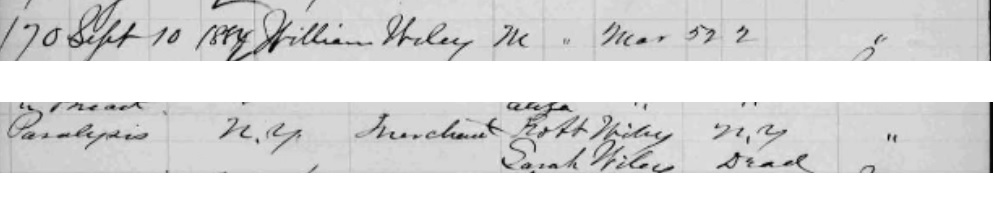 170 Sept 10 1884 William Wiley M " Mar 52 2 "
Aliza " "
Paralysis N.Y Merchant Robt Wiley N.Y "
Sarah Wiley Dead